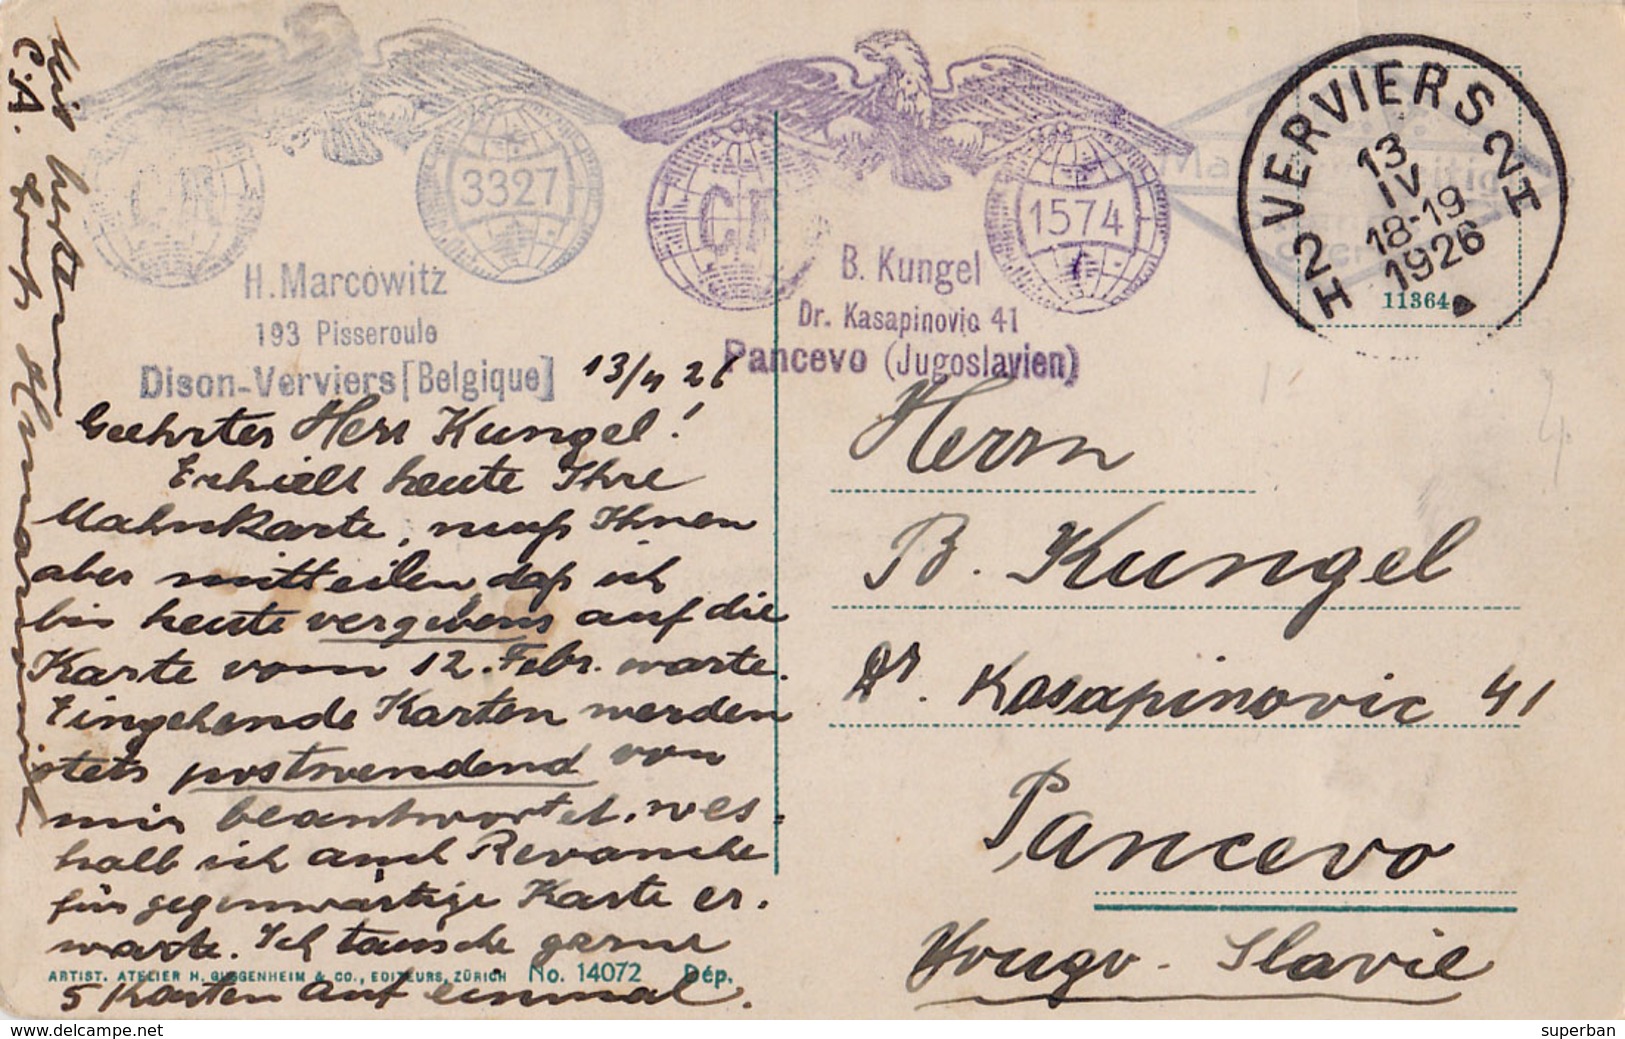 3327
H. Marcowitz
193 Pisseroule
Dison-Verviers [Belgique]
1574
B. Kungel
Dr. Kasapinovic 41
Pancevo (Jugoslavien)
VERVIERS
2H 2H
13
IV
18-19
1926
11364
13/4 26
Geehrter Herr Kungel!
Erhielt heute Ihre
Mahnkarte, muß Ihnen
aber mitteilen, daß ich
bis heute vergebens auf die
Karte vom 12. Febr. warte.
Eingehende Karten werden
stets postwendend von
mir beantwortet, wes-
halb ich auch Revanche
für gegenwärtige Karte er-
warte. Ich tausche gerne
5 Karten auf einmal.
Mit bestem
C.A. Gruß H. Marcowitz
Herrn
B. Kungel
Dr. Kasapinovic 41
Pancevo
Yougo-Slavie
ARTIST. ATELIER H. GUGGENHEIM & CO., EDITEURS, ZÜRICH No. 14072 Dép.
www.delcampe.net
superban